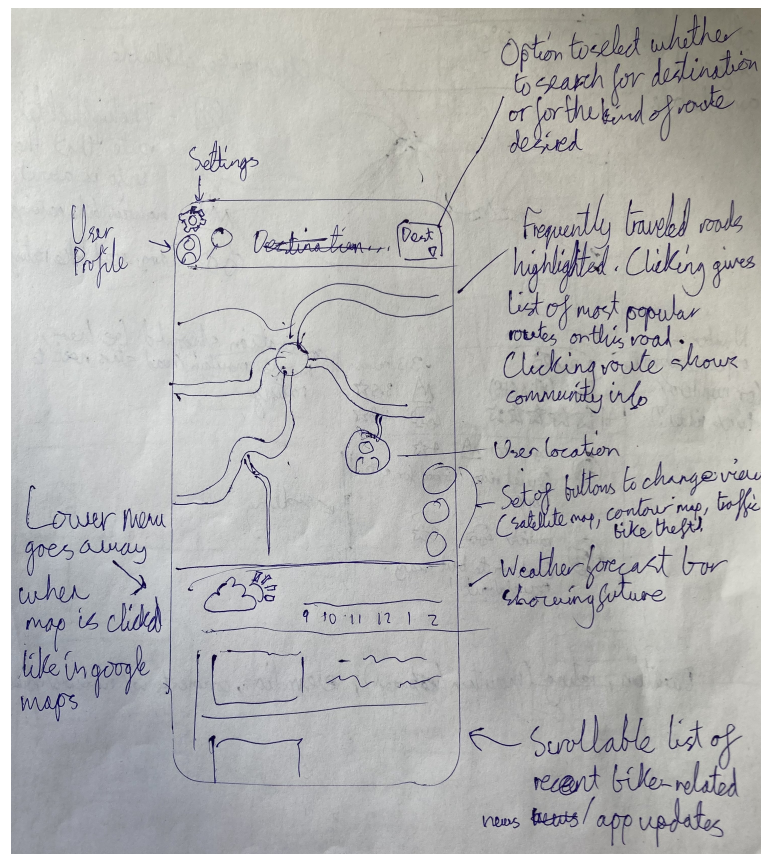 Option to select whether
to search for destination
or for the kind of route
desired
Settings
User
Profile
Destination...
Dest
Frequently traveled roads
highlighted. Clicking gives
list of most popular
routes on this road.
Clicking route shows
community info
User location
Set of buttons to change view
(satellite map, contour map, traffic
bike theft)
Lower menu
goes away
when
map is clicked
like in google
maps
Weather forecast bar
showing future
9 10 11 12 1 2
Scrollable list of
recent bike-related
news news / app updates